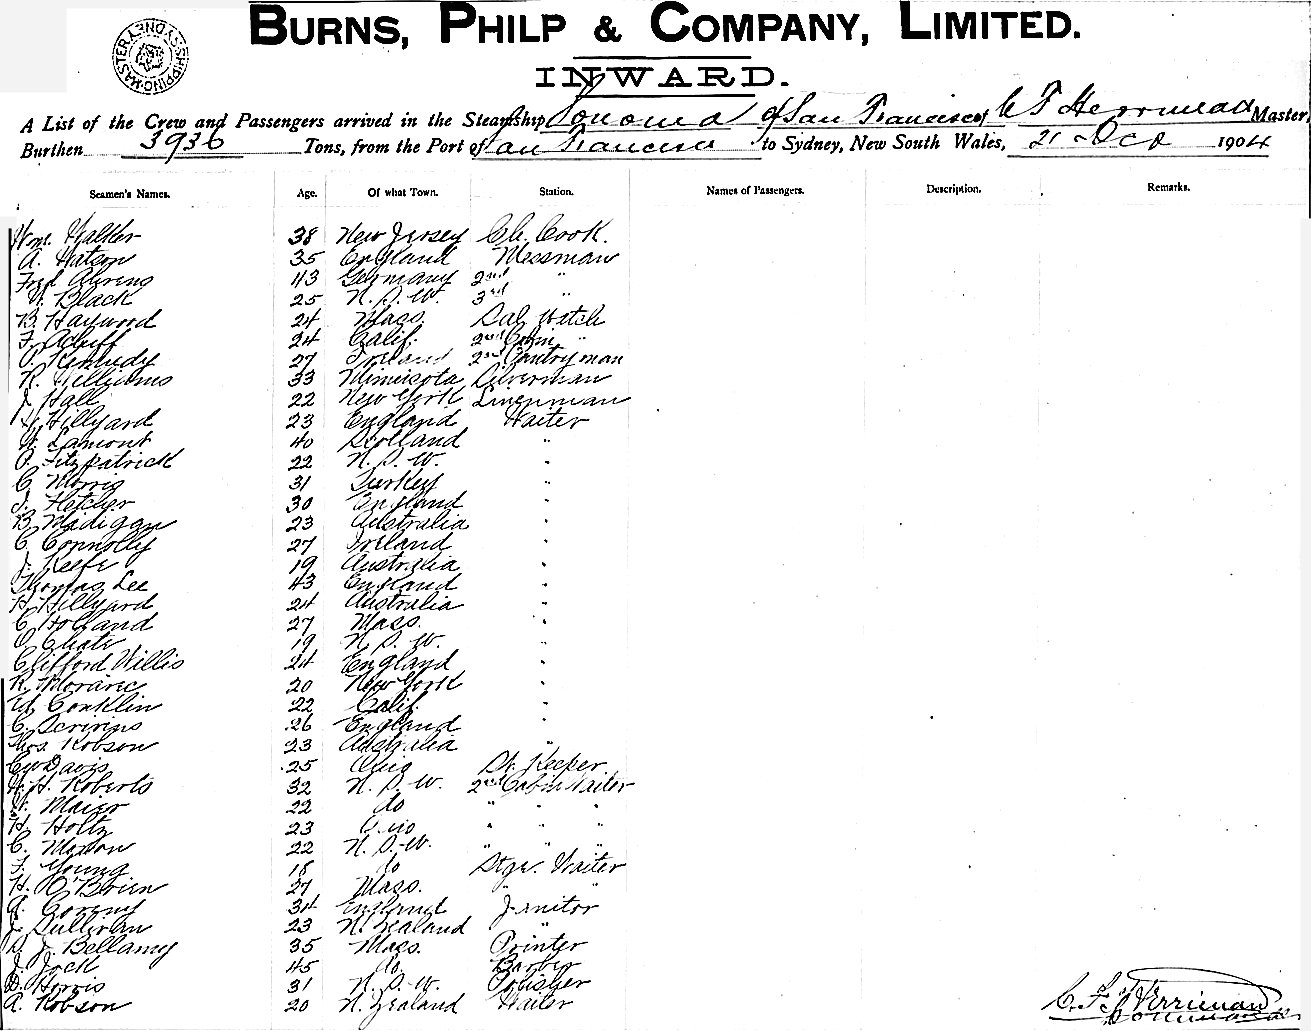 BURNS, PHILP & COMPANY, LIMITED.
SHIPPING MASTER SYDNEY
INWARD.
A List of the Crew and Passengers arrived in the Steamship Sonoma of San Francisco, C F Herriman Master,
Burthen 3936 Tons, from the Port of San Francisco to Sydney, New South Wales, 21 Dec 1904
Seamen's Names. Age. Of what Town. Station. Names of Passengers. Description. Remarks.
Wm. Walker 38 New Jersey Ch. Cook.
A. Watson 35 England Messman
Fred Ahrens 43 Germany 2nd "
W. Black 25 N. S. W. 3rd "
B. Haywood 24 Mass. Sal Watch
F. 24 Calif. 2nd Cabin "
Kennedy 27 Ireland 2nd Pantryman
R. Williams 33 Minnisota Silverman
J. Hall 22 New York Linenman
Hillyard 23 England Waiter
Lamont 40 Scotland "
Fitzpatrick 22 N. S. W. "
C. Morris 31 Turkey "
Fletcher 30 England "
B. Madigan 23 Australia "
C. Connolly 27 Ireland "
J. Keefe 19 Australia "
Thomas Lee 43 England "
H. Hillyard 24 Australia "
C. Holland 27 Mass. "
19 N. S. W. "
Clifford Willis 24 England "
R. 20 New York "
Conklin 22 Calif. "
C. 26 England "
Thos. Robson 23 Australia "
Davis 25 Ohio St. Keeper
H. Roberts 32 N. S. W. 2nd Cabin Waiter
Maier 22 do " " "
H. Holtz 23 Ohio " " "
C. Moxon 22 N. S. W. " " "
F. Young 18 do Stge. Waiter
H. O'Brien 27 Mass. " "
34 England Janitor
J. Sullivan 23 N. Zealand "
D. J. Bellamy 35 Mass. Printer
J. Jock 45 do. Barber
D. Norris 31 N. S. W. Polisher
A. Robson 20 N. Zealand Waiter
C. F. Herriman
Commander